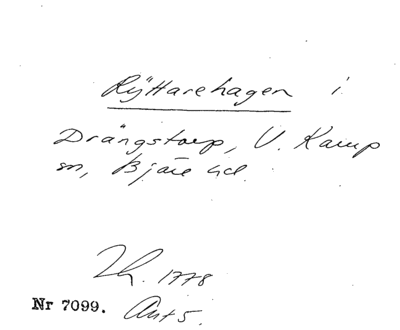 Ryttarehagen i
Drängstorp, V. Karup
sn, Bjäre hd.
Lh. 1778
Nr 7099. Akt 5.